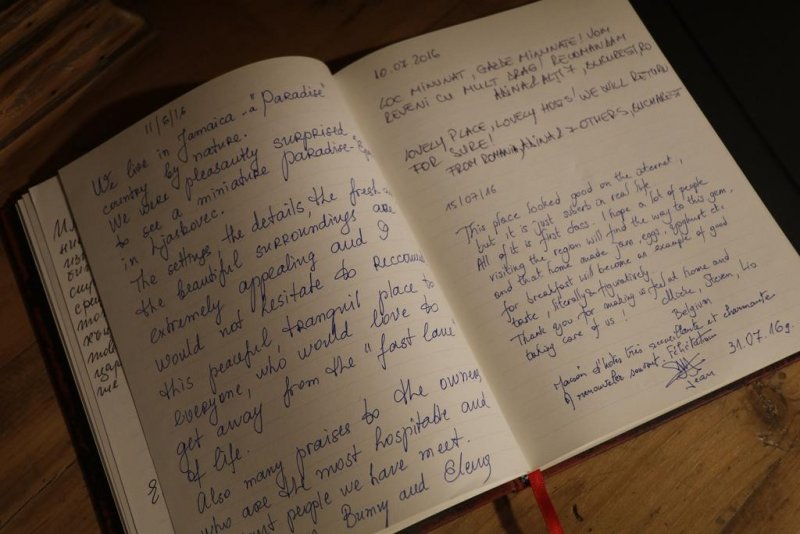 11/6/16
We live in Jamaica - a "Paradise"
country by nature.
We were pleasantly surprised
to see a miniature paradise
in Ljaskovec.
The settings, the details, the fresh
the beautiful surroundings are
extremely appealing and I
would not hesitate to reccomend
this peaceful, tranquil place to
everyone, who would love to
get away from the "fast lane"
of life.
Also many praises to the owners
who are the most hospitable and
people we have meet.
and
10.07.2016
LOC MINUNAT, GAZDE MINUNATE! VOM
REVENI CU MULT DRAG! RECOMANDAM
ALINA & ALȚI 7, BUCUREȘTI, RO
LOVELY PLACE, LOVELY HOSTS! WE WILL RETURN
FOR SURE!
FROM ROMANIA, ALINA & 7 OTHERS, BUCHAREST
15/07/16
This place looked good on the internet,
but it is just superb in real life.
All of it is first class. I hope a lot of people
visiting the region will find the way to this gem,
and that home made jam, eggs, yoghurt etc.
for breakfast will become an example of good
taste, literally & figuratively.
Thank you for making us feel at home and
taking care of us! Steven,
Belgium
Maison d'hôtes très accueillante et charmante
A renouveler souvent. Félicitation
Jean
31.07.16г.